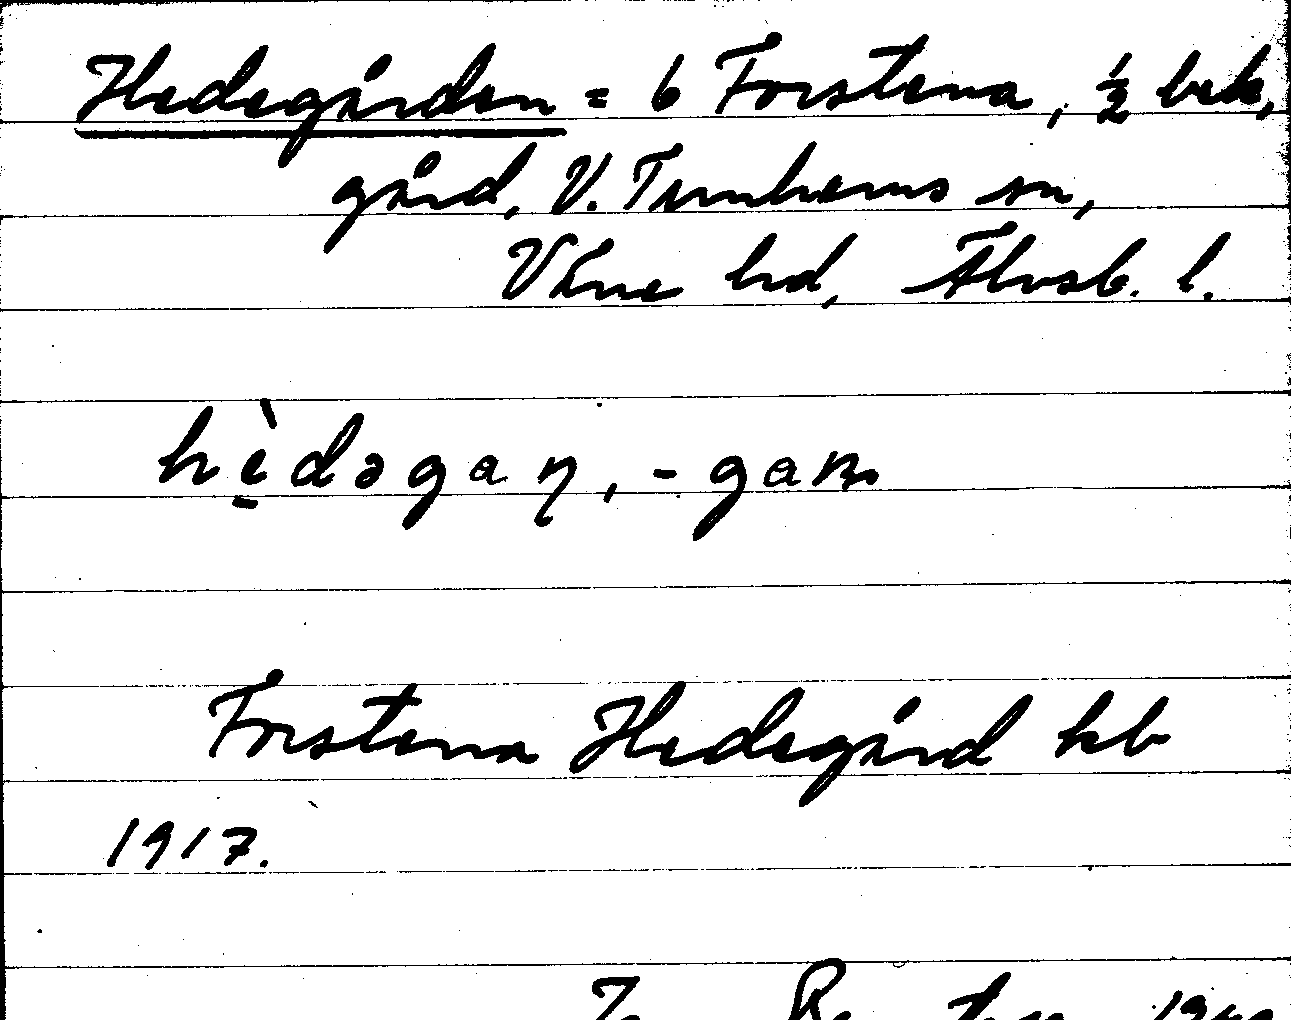 Hedegården = 6 Forstena, ½ bek,
gård, V. Tunhems sn,
Väne hd, Älvsb. l.
hè̱dəgaɳ, -gan
Forstena Hedegård kb
1917.